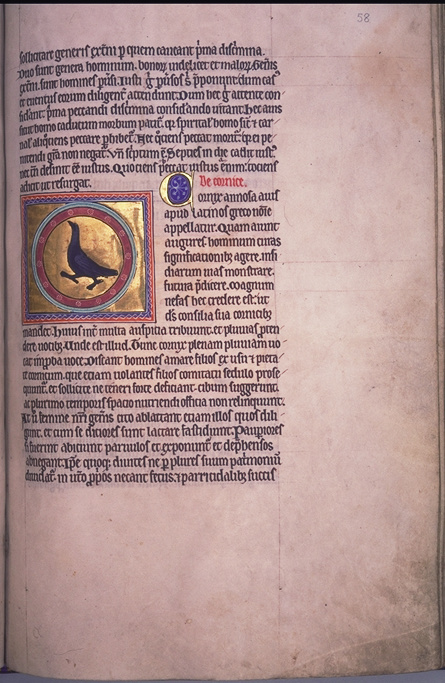 58
sollicitare generis exēm p quem caueant pma discrimina.
Duo sunt genera hominum. bonorum uidelicet et malorum. Gen̄is
exēm. sunt homines puersi. Iusti g puersos s pponunt dum cas
et euentus eorum diligent attendunt. Dum hec g attente con-
siderant. pma peccandi discrimina considerando uitant. Hec auis
sicut homo caducum morbum patit. q spirital homo sic et car-
nal aliquociens peccare phibet. Nec quociens peccat morit. q ei pe-
nitendi gra non negat. Vn̄ scptum ē. Septies in die cadit iust.
nec tn̄ desinit ee iustus. Quociens peccat iustus enim: tociens
adicit ut resurgat.
De cornice.
Cornix annosa auis
apud latinos greco nōie
appellatur. Quam aiunt
augures hominum curas
significationib agere. insi-
diarum uias monstrare.
futura pdicere. Magnum
nefas hec credere est: ut
ds consilia sua cornicib
mandet. Huius int multa auspitia tribuunt. et pluuias pten-
dere uocib. Vnde est illud. Tunc cornix plenam pluuiam uo-
cat improba uoce. Discant homines amare filios ex usu et pieta-
te cornicum. que etiam uolantes filios comitatu sedulo prose-
quunt. et sollicite ne teneri forte deficiant. cibum suggerunt.
ac plurimo temporis spacio nutriendi officia non relinqunt.
At u femine nri gen̄is cito ablactant etiam illos quos dili-
gunt. et cum se diciores sunt lactare fastidiunt. Pauperiores
si fuerint abiciunt paruulos et exponunt et dephensos
abnegant. Ipse quoq diuites ne p plures suum patrimoniū
diuidat. in utero pprios necant fetus. et parricidalib succis